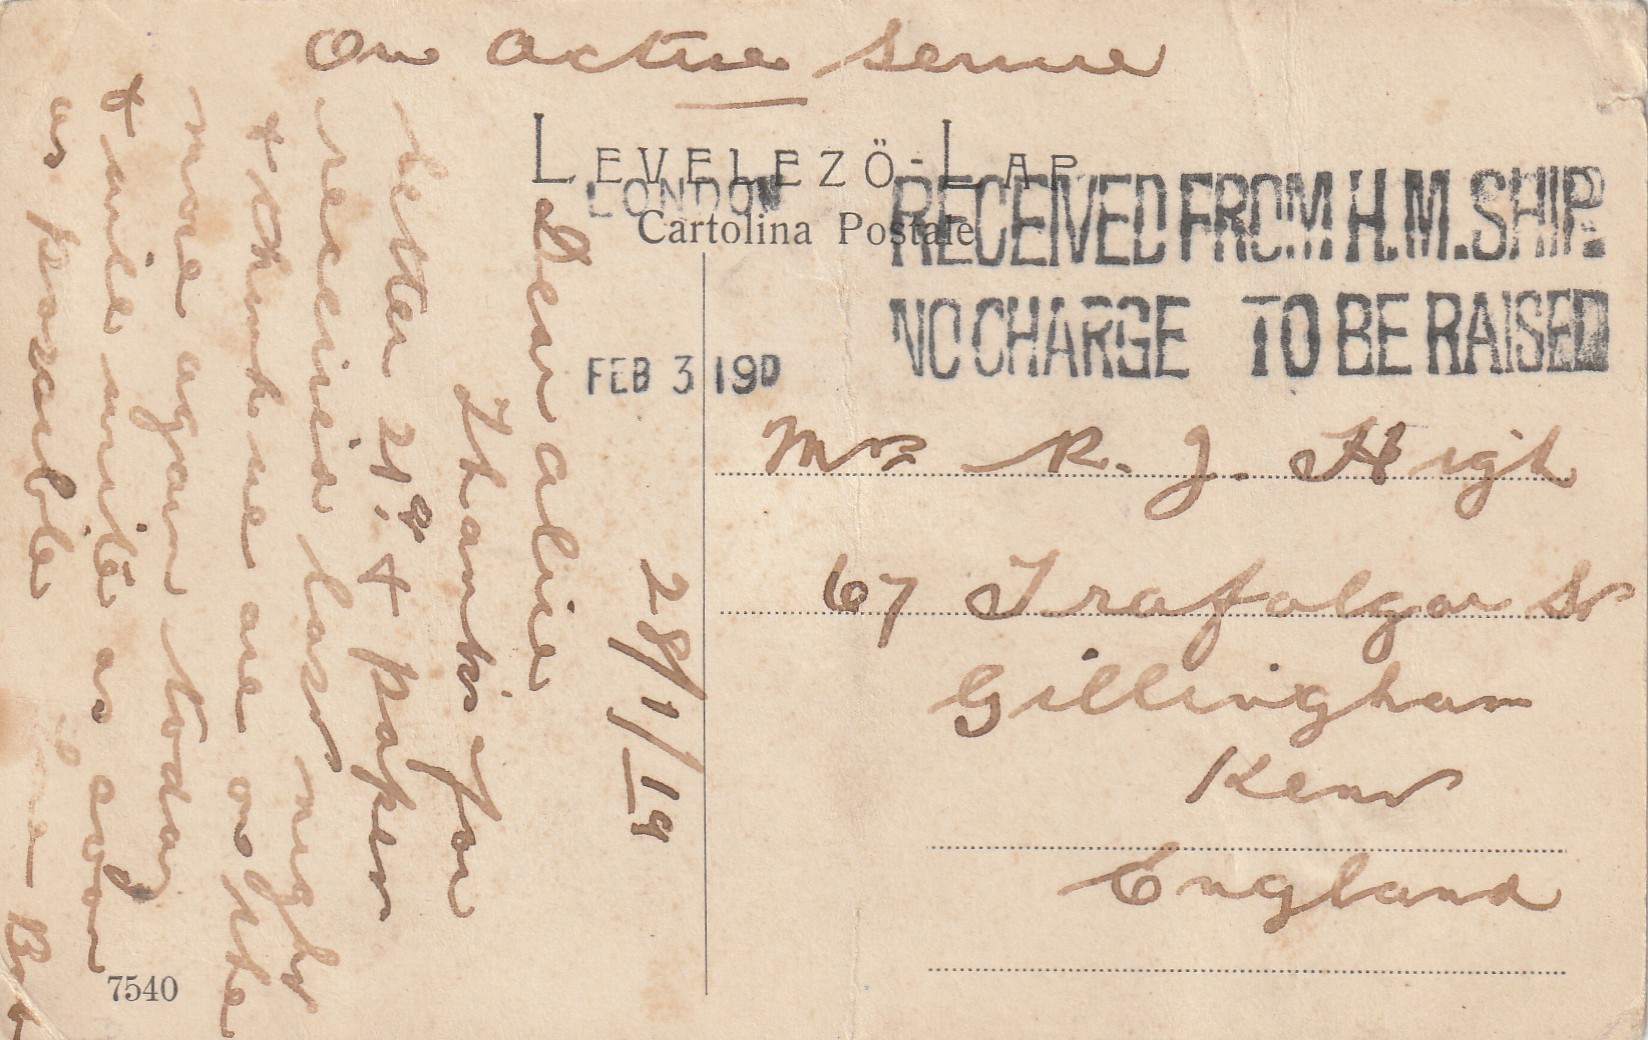 On active service
LEVELEZÖ-LAP
Cartolina Postale
LONDON
FEB 3 19
RECEIVED FROM H.M. SHIP.
NO CHARGE TO BE RAISED
28/1/19
Dear alice
Thanks for
letter 21st. + paper
received last night
+ think we are on the
move again today
+ will write as soon
as possible
Bob
Mrs R. J. High
67 Trafalgar St
Gillingham
Kent
England
7540